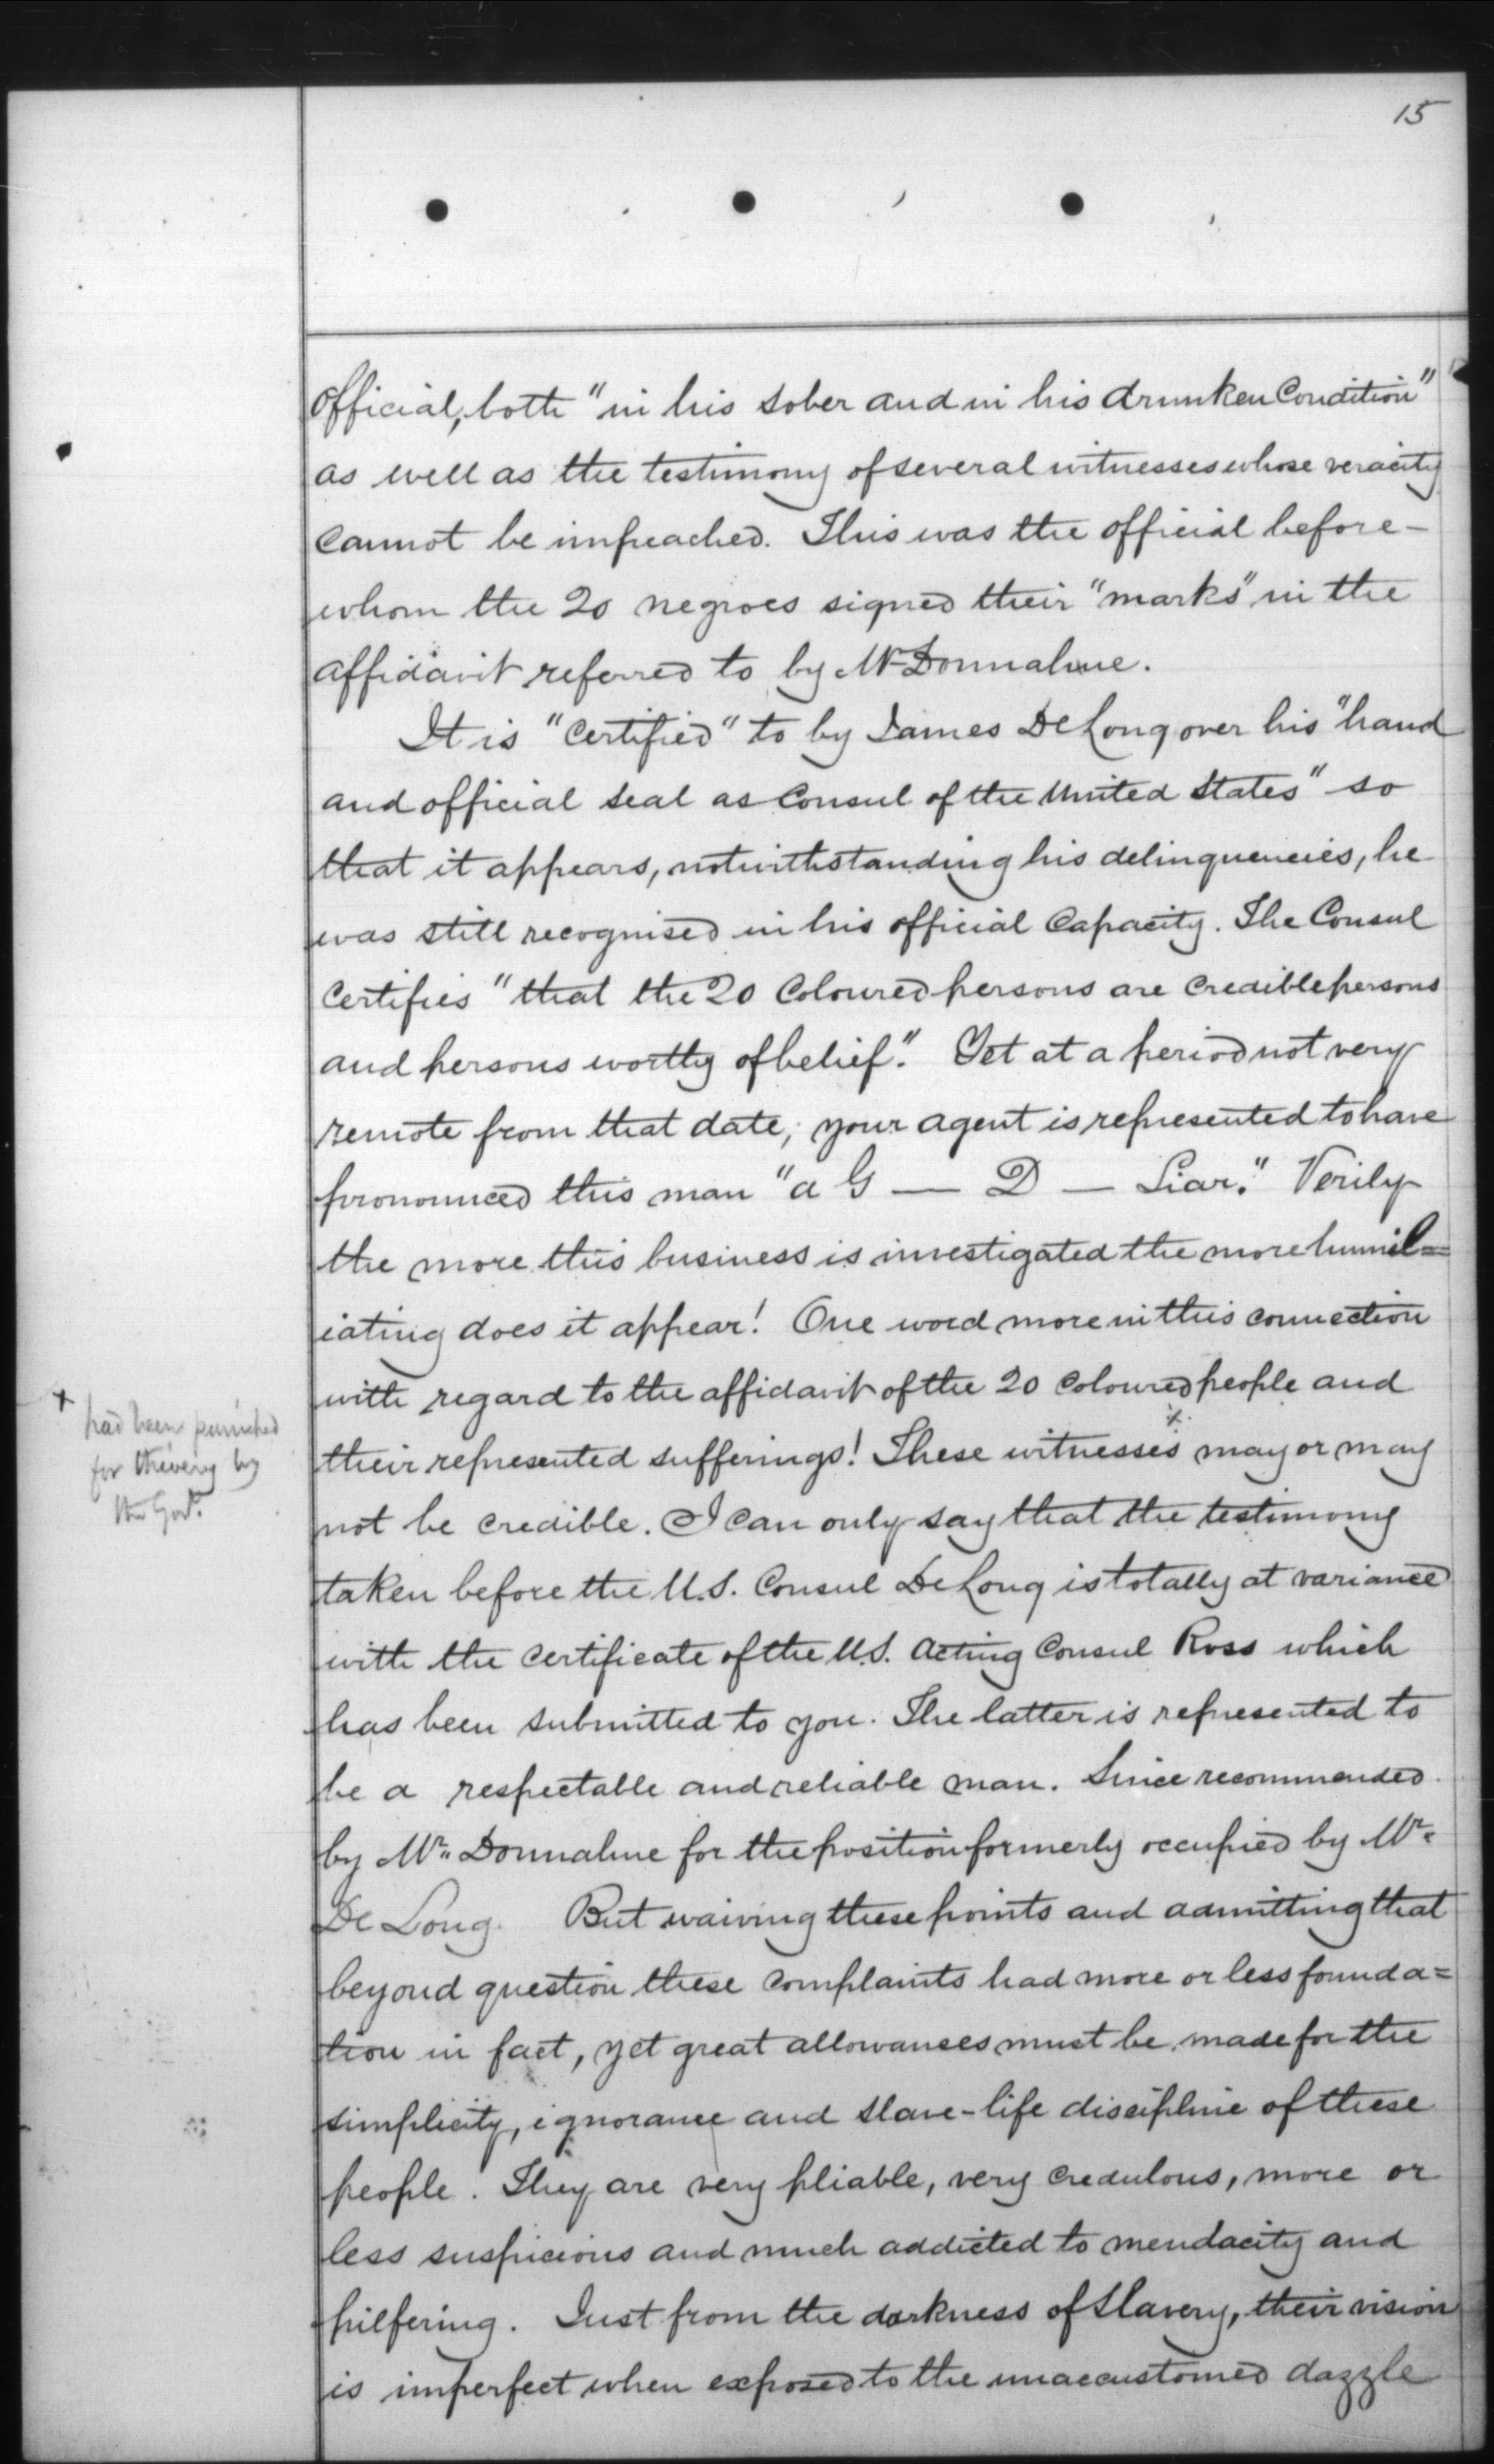 15
official, both "in his sober and in his drunken Condition"
as well as the testimony of several witnesses whose veracity
Cannot be impeached. This was the official before-
whom the 20 negroes signed their "marks" in the
affidavit referred to by Mr Donnahue.
It is "Certified" to by James De Long over his "hand
and official seal as Consul of the United States" so
that it appears, notwithstanding his delinquencies, he
was still recognised in his official Capacity. The Consul
Certifies "that the 20 Coloured persons are Credible persons
and persons worthy of belief." Yet at a period not very
remote from that date, your agent is represented to have
pronounced this man "a G — D — Liar." Verily
the more this business is investigated the more humil=
iating does it appear! One word more in this connection
with regard to the affidavit of the 20 Coloured people and
their represented sufferings! These witnesses x may or may
+ had been punished
for thievery by
the Govt.
not be credible. I Can only say that the testimony
taken before the U.S. Consul De Long is totally at variance
with the Certificate of the U.S. Acting Consul Ross which
has been submitted to you. The latter is represented to
be a respectable and reliable man. Since recommended
by Mr. Donnahue for the position formerly occupied by Mr.
De Long. But waiving these points and admitting that
beyond question these Complaints had more or less founda=
tion in fact, yet great allowances must be made for the
simplicity, ignorance and slave-life discipline of these
people. They are very pliable, very Credulous, more or
less suspicious and much addicted to mendacity and
pilfering. Just from the darkness of slavery, their vision
is imperfect when exposed to the unaccustomed dazzle